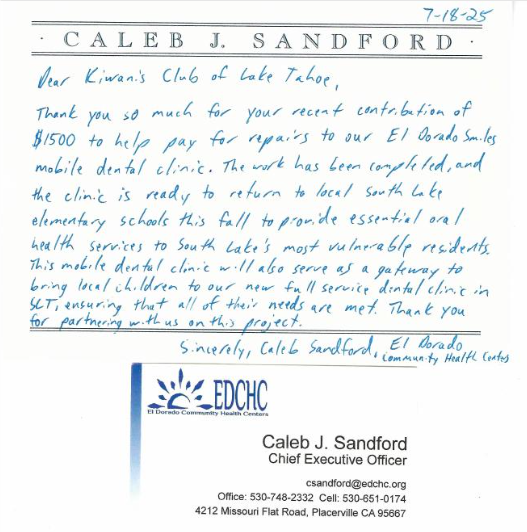 7-18-25
· CALEB J. SANDFORD ·
Dear Kiwanis Club of Lake Tahoe,
Thank you so much for your recent contribution of
$1500 to help pay for repairs to our El Dorado Smiles
mobile dental clinic. The work has been completed, and
the clinic is ready to return to local South Lake
elementary schools this fall to provide essential oral
health services to South Lake's most vulnerable residents.
This mobile dental clinic will also serve as a gateway to
bring local children to our new full service dental clinic in
SLT, ensuring that all of their needs are met. Thank you
for partnering with us on this project.
Sincerely, Caleb Sandford, El Dorado
Community Health Centers
EDCHC
El Dorado Community Health Centers
Caleb J. Sandford
Chief Executive Officer
csandford@edchc.org
Office: 530-748-2332 Cell: 530-651-0174
4212 Missouri Flat Road, Placerville CA 95667